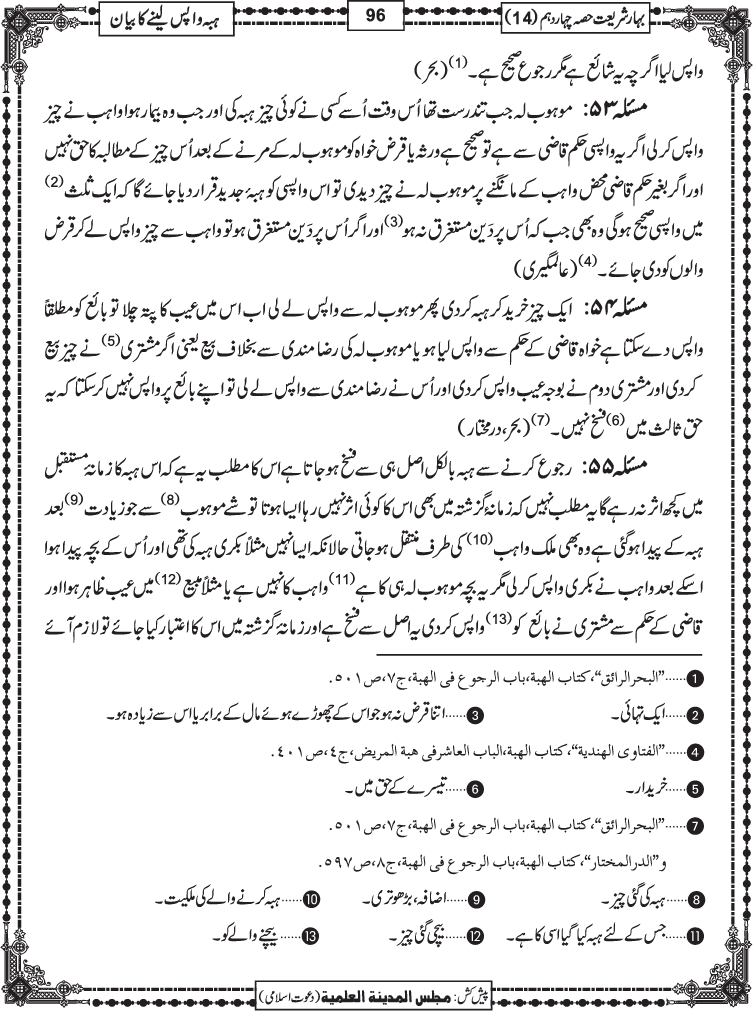 بہار شریعت حصہ چہاردہم (14)
96
ہبہ واپس لینے کا بیان
واپس لیا اگرچہ یہ شائع ہے مگر رجوع صحیح ہے۔(1) (بحر)
مسئلہ ۵۳: موہوب لہ جب تندرست تھا اُس وقت اُسے کسی نے کوئی چیز ہبہ کی اور جب وہ بیمار ہوا واہب نے چیز
واپس کر لی اگر یہ واپسی حکم قاضی سے ہے تو صحیح ہے ورثہ یا قرض خواہ کو موہوب لہ کے مرنے کے بعد اُس چیز کے مطالبہ کا حق نہیں
اور اگر بغیر حکم قاضی محض واہب کے مانگنے پر موہوب لہ نے چیز دیدی تو اس واپسی کو ہبۂ جدید قرار دیا جائے گا کہ ایک ثلث(2)
میں واپسی صحیح ہوگی وہ بھی جب کہ اُس پر دَین مستغرق نہ ہو(3) اور اگر اُس پر دَین مستغرق ہو تو واہب سے چیز واپس لے کر قرض
والوں کو دی جائے۔(4) (عالمگیری)
مسئلہ ۵۴: ایک چیز خرید کر ہبہ کر دی پھر موہوب لہ سے واپس لے لی اب اس میں عیب کا پتہ چلا تو بائع کو مطلقاً
واپس دے سکتا ہے خواہ قاضی کے حکم سے واپس لیا ہو یا موہوب لہ کی رضا مندی سے بخلاف بیع یعنی اگر مشتری(5) نے چیز بیع
کر دی اور مشتری دوم نے بوجہ عیب واپس کر دی اور اُس نے رضا مندی سے واپس لے لی تو اپنے بائع پر واپس نہیں کر سکتا کہ یہ
حق ثالث میں(6) فسخ نہیں۔(7) (بحر، درمختار)
مسئلہ ۵۵: رجوع کرنے سے ہبہ بالکل اصل ہی سے فسخ ہو جاتا ہے اس کا مطلب یہ ہے کہ اس ہبہ کا زمانۂ مستقبل
میں کچھ اثر نہ رہے گا یہ مطلب نہیں کہ زمانۂ گزشتہ میں بھی اس کا کوئی اثر نہیں رہا ایسا ہوتا تو شے موہوب(8) سے جو زیادت(9) بعد
ہبہ کے پیدا ہو گئی ہے وہ بھی ملک واہب(10) کی طرف منتقل ہو جاتی حالانکہ ایسا نہیں مثلاً بکری ہبہ کی تھی اور اُس کے بچہ پیدا ہوا
اسکے بعد واہب نے بکری واپس کر لی مگر یہ بچہ موہوب لہ ہی کا ہے(11) واہب کا نہیں ہے یا مثلاً مبیع(12) میں عیب ظاہر ہوا اور
قاضی کے حکم سے مشتری نے بائع کو(13) واپس کر دی یہ اصل سے فسخ ہے اور زمانۂ گزشتہ میں اس کا اعتبار کیا جائے تو لازم آئے
1......"البحرالرائق"، کتاب الھبة، باب الرجوع فی الھبة، ج٧، ص٥٠١.
2......ایک تہائی۔ 3......اتنا قرض نہ ہو جو اس کے چھوڑے ہوئے مال کے برابر یا اس سے زیادہ ہو۔
4......"الفتاوی الھندیة"، کتاب الھبة، الباب العاشر فی ھبة المریض، ج٤، ص٤٠١.
5......خریدار۔ 6......تیسرے کے حق میں۔
7......"البحرالرائق"، کتاب الھبة، باب الرجوع فی الھبة، ج٧، ص٥٠١.
و"الدرالمختار"، کتاب الھبة، باب الرجوع فی الھبة، ج٨، ص٥٩٧.
8......ہبہ کی گئی چیز۔ 9......اضافہ، بڑھوتری۔ 10......ہبہ کرنے والے کی ملکیت۔
11......جس کے لئے ہبہ کیا گیا اسی کا ہے۔ 12......بیچی گئی چیز۔ 13......بیچنے والے کو۔
پیش کش: مجلس المدینة العلمیة (دعوت اسلامی)